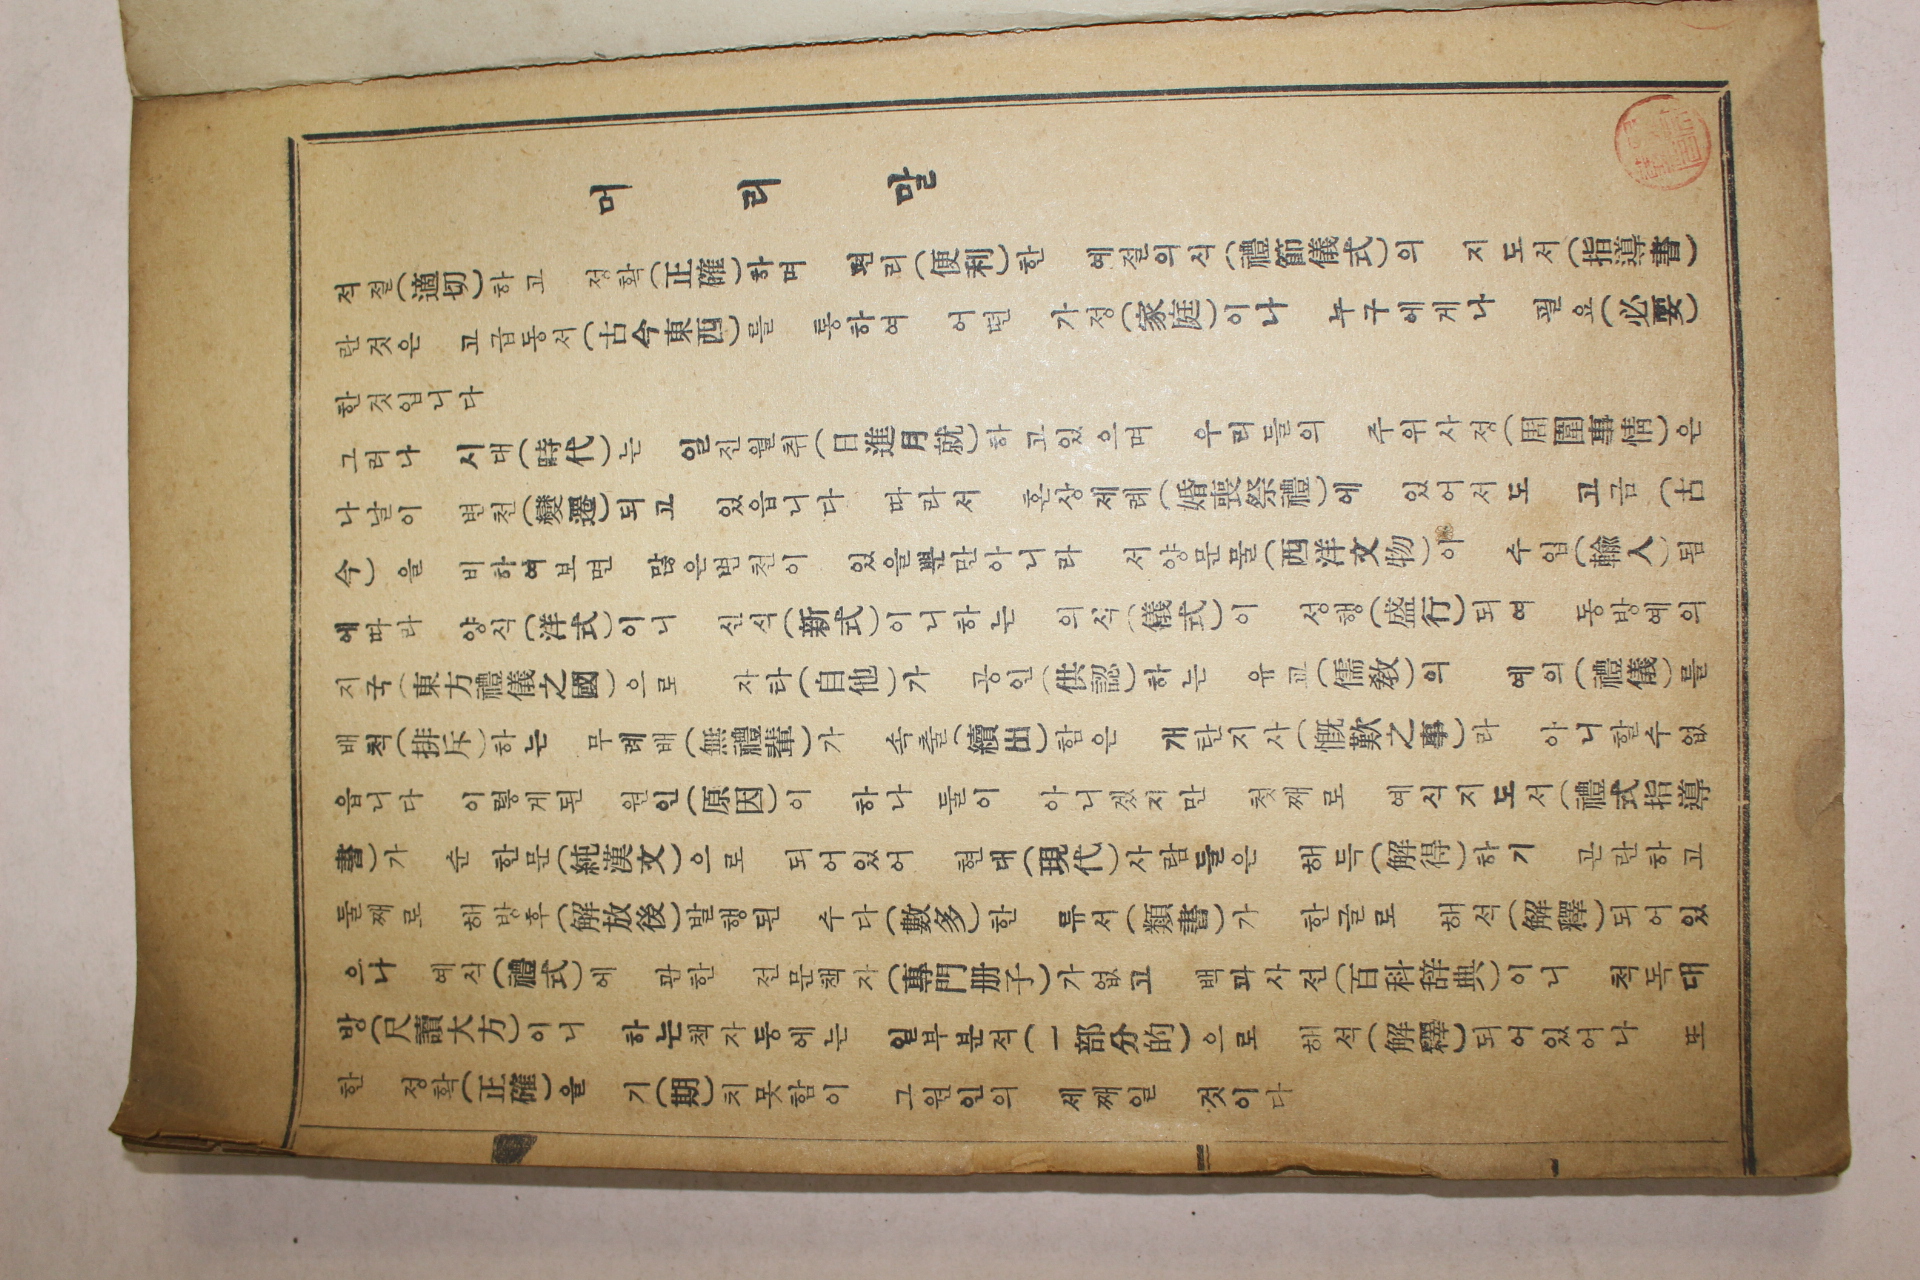 머리말
적절(適切)하고 정확(正確)하며 편리(便利)한 예절의식(禮節儀式)의 지도서(指導書)
란것은 고급동서(古今東西)를 통하여 어떤 가정(家庭)이나 누구에게나 필요(必要)
한것입니다
그러나 시대(時代)는 일진월취(日進月就)하고있으며 우리들의 주위사정(周圍事情)은
나날이 변천(變遷)되고 있읍니다 따라서 혼상제례(婚喪祭禮)에 있어서도 고금(古
今)을 비하여보면 많은변천이 있을뿐만아니라 서양문물(西洋文物)이 수입(輸入)됨
에따라 양식(洋式)이니 신식(新式)이니하는 의식(儀式)이 성행(盛行)되여 동방예의
지국(東方禮儀之國)으로 자타(自他)가 공인(供認)하는 유교(儒敎)의 예의(禮儀)를
배척(排斥)하는 무례배(無禮輩)가 속출(續出)함은 개탄지사(慨歎之事)라 아니할수없
읍니다 이렇게된 원인(原因)이 하나 둘이 아니겠지만 첫째로 예식지도서(禮式指導
書)가 순 한문(純漢文)으로 되어있어 현대(現代)사람들은 해득(解得)하기 곤란하고
둘째로 해방후(解放後)발행된 수다(數多)한 류서(類書)가 한글로 해석(解釋)되어있
으나 예식(禮式)에 관한 전문책자(專門册子)가없고 백과사전(百科辞典)이니 척독대
방(尺讀大方)이니 하는책자등에는 일부분적(一部分的)으로 해석(解釋)되어있어나 또
한 정확(正確)을 기(期)치못함이 그원인의 세째일 것이다